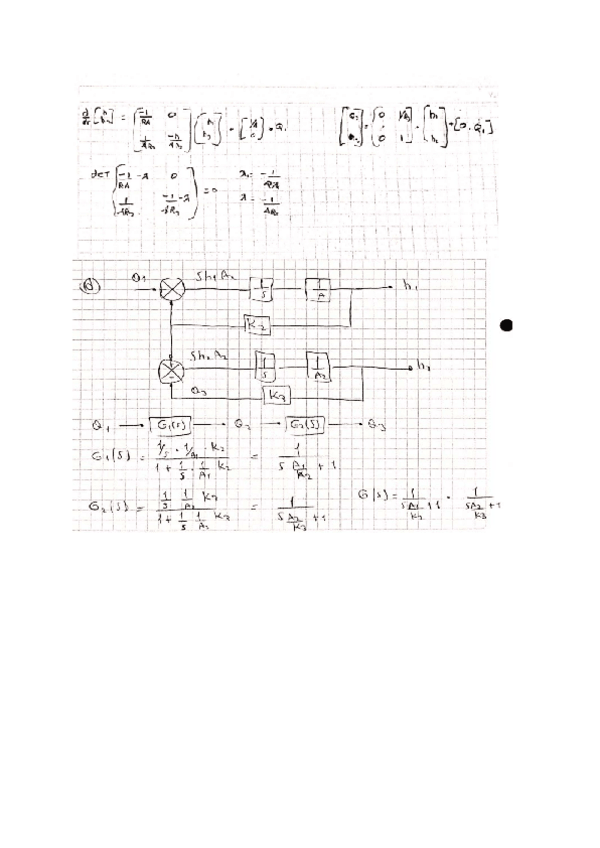 d/dt [h₁ h₂] = [-1/RA 0; 1/AR₂ -1/AR₂] [h₁ h₂] + [1/A 0] · Q₁
[0 1/R₂; 0 1] · [h₁ h₂] + [0 · Q₁]
det [-1/RA - λ 0; 1/AR₂ -1/AR₂ - λ] = 0
λ₁ = -1/RA
λ = -1/AR₂
Q₁ Sh₁A₂ 1/S 1/A h₁
K₂
Sh₂A₂ 1/S 1/A₂ h₂
Q₃ K₃
Q₁ → G₁(S) → Q₂ → G₂(S) → Q₃
G₁(S) = (1/S · 1/A₁ · K₂) / (1 + 1/S · 1/A₁ K₂) = 1 / (S A₁/K₂ + 1)
G₂(S) = (1/S 1/A₂ K₃) / (1 + 1/S 1/A₂ K₃) = 1 / (S A₂/K₃ + 1)
G(S) = 1 / (S A₁/K₂ + 1) · 1 / (S A₂/K₃ + 1)